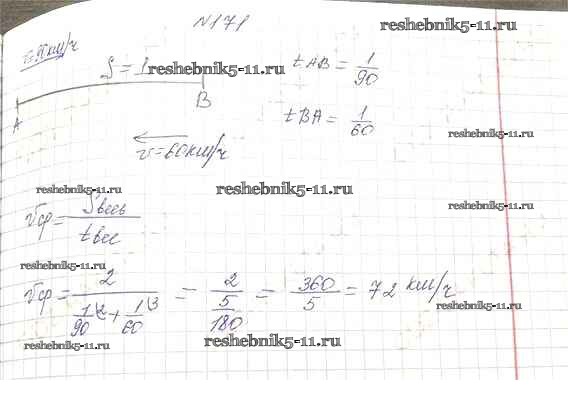 N171
reshebnik5-11.ru
v=90км/ч
S = 1
reshebnik5-11.ru
A
B
tAB = 1/90
tBA = 1/60
reshebnik5-11.ru
v=60км/ч
reshebnik5-11.ru
reshebnik5-11.ru
reshebnik5-11.ru
Vср = Sвесь / tвсе
reshebnik5-11.ru
Vср = 2 / (1\2/90 + 1\3/60) = 2 / (5/180) = 360/5 = 72 км/ч
reshebnik5-11.ru
reshebnik5-11.ru
reshebnik5-11.ru